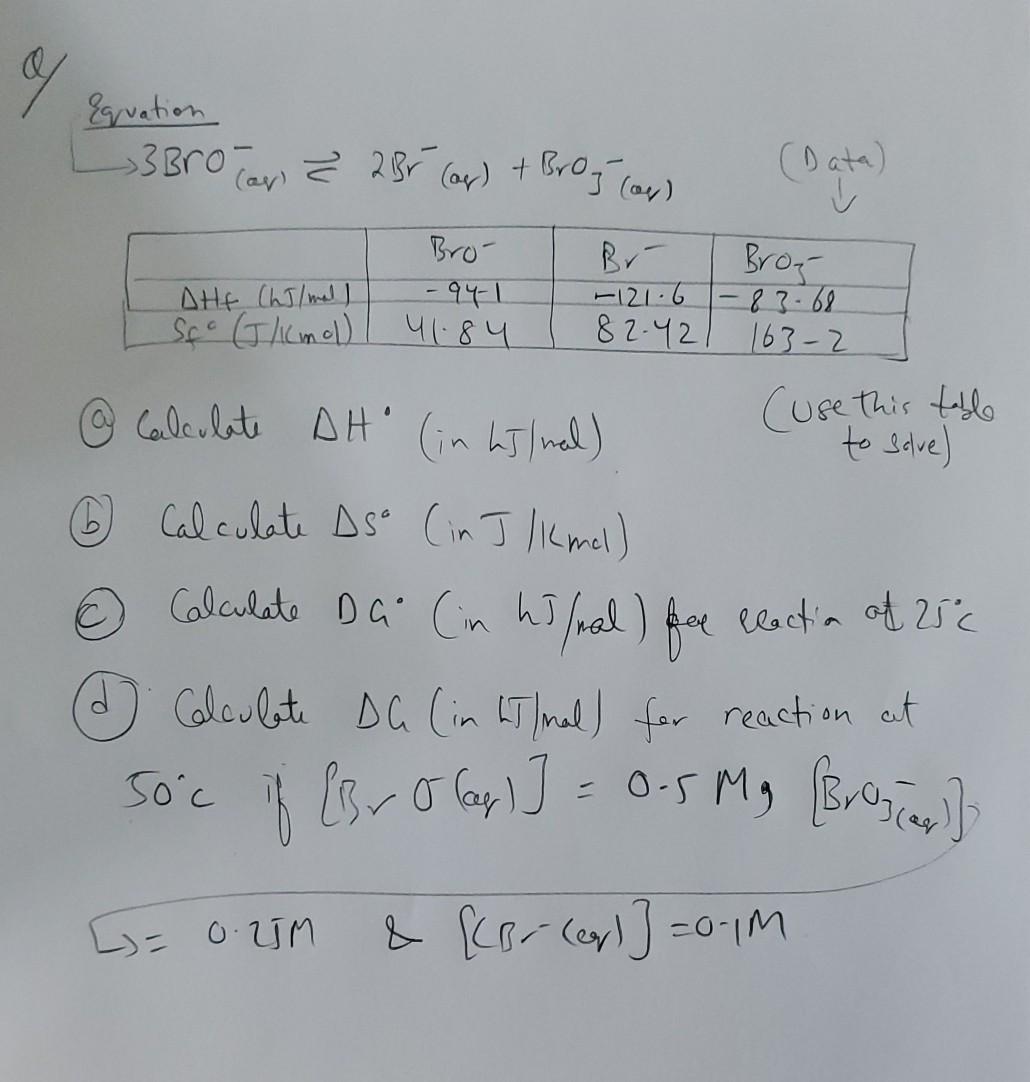 Q/
Equation
→3BrO⁻(aq) ⇌ 2Br⁻(aq) + BrO₃⁻(aq) (Data)
BrO⁻ Br⁻ BrO₃⁻
ΔHf (kJ/mol) -94.1 -121.6 -83.68
Sf° (J/Kmol) 41.84 82.42 163.2
(Use this table
to solve)
(a) Calculate ΔH° (in kJ/mol)
(b) Calculate ΔS° (in J/Kmol)
(c) Calculate ΔG° (in kJ/mol) for reaction at 25°C
(d) Calculate ΔG (in kJ/mol) for reaction at
50°C if [BrO⁻(aq)] = 0.5 M, [BrO₃⁻(aq)]
→ = 0.25M & [Br⁻(aq)] = 0.1M